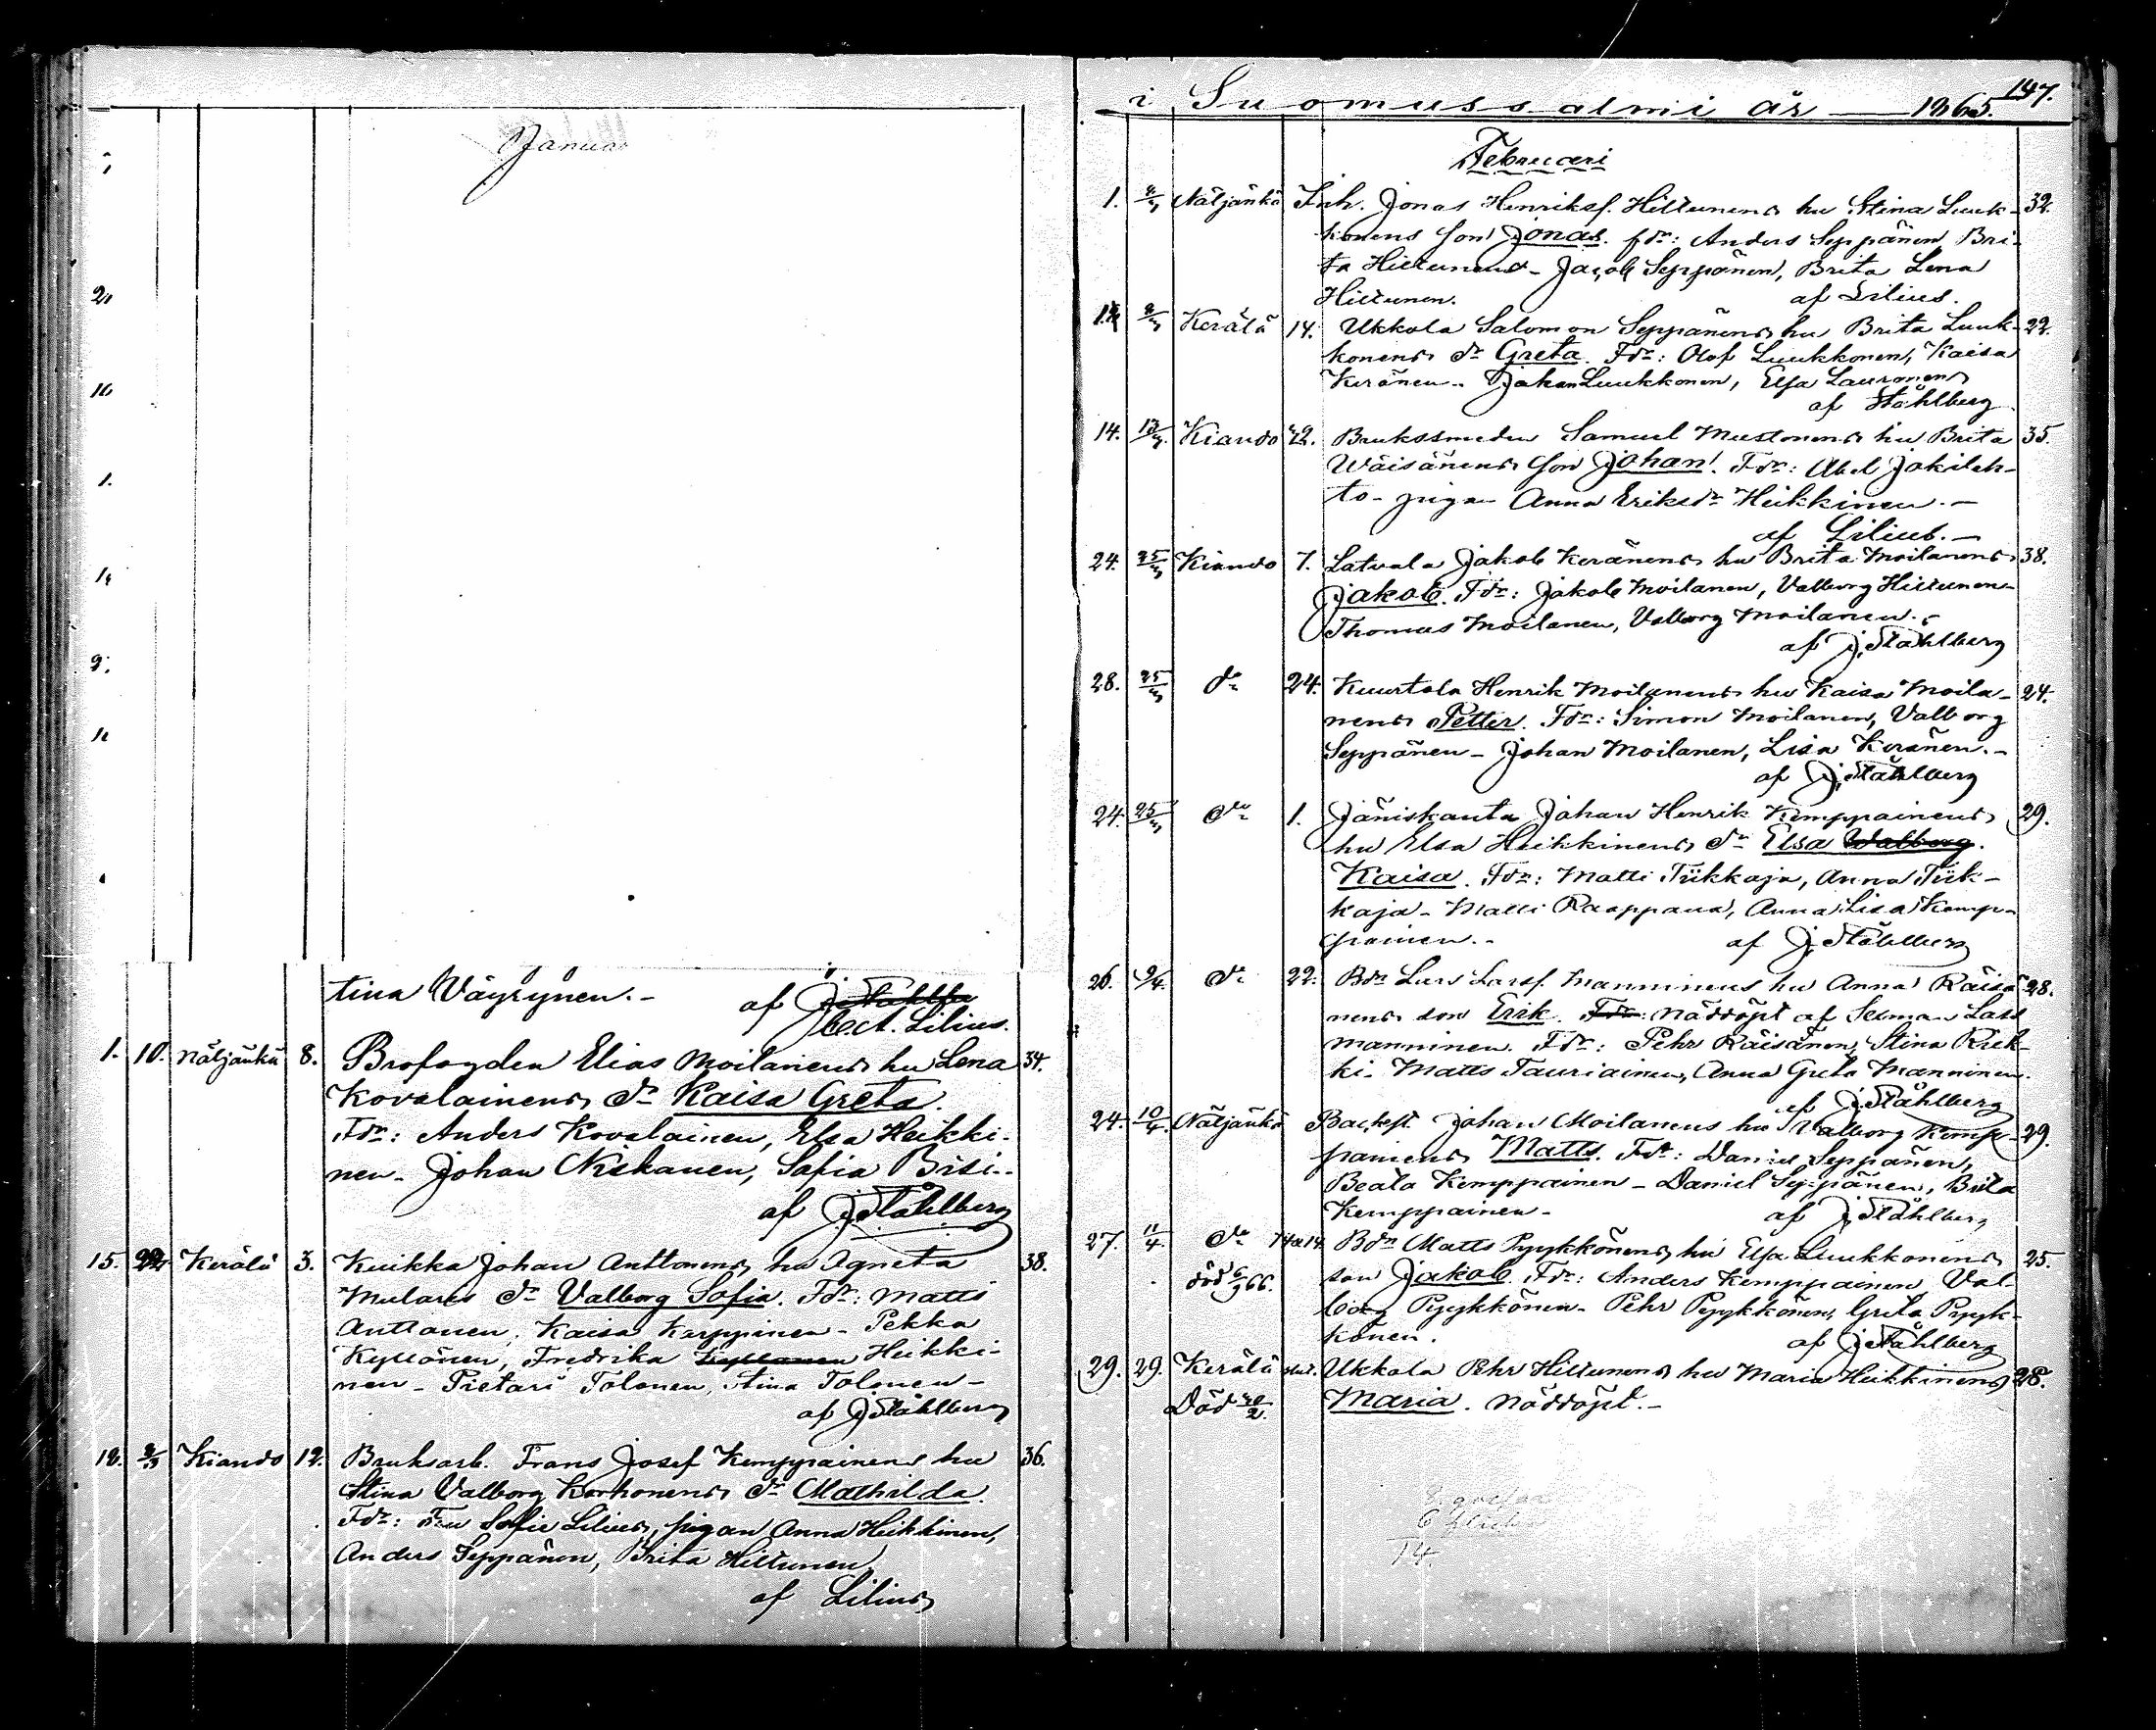 Janua
2,
16,
1.
tina Väyrynen.- af J. Ståhlbe
Lect. Lilius.
1. 10. Näljänkä 8. Brofogden Elias Moilanens hu Lena 34.
Kovalainens dr Kaisa Greta.
Fdr: Anders Kovalainen, Elsa Heikki-
nen - Johan Niskanen, Sofia Bisi..
af J. Ståhlberg
15. 22 Kerälä 3. Kuikka Johan Anttonens hu Agneta 38.
Mularis dr Valborg Sofia. Fdr: Matts
Anttonen, Kaisa Karppinen - Pekka
Kyllönen, Fredrika Kyllönen Heikki-
nen - Pietari Tolonen, Stina Tolonen -
af J. Ståhlberg
12. Kiando 12. Bruksarb. Frans Josef Kemppainens hu 36.
Stina Valborg Korhonens dr Mathilda.
Fdr: Fru Sofie Lilius, pigan Anna Heikkinen,
Anders Seppänen, Brita Hiltunen
af Lilius
147.
i Suomussalmi år — 1865.
Februari
1. Näljänkä Inh. Jonas Henriksf. Hiltunens hu Stina Luuk- 32.
konens son Jonas. fdr: Anders Seppänen, Bri-
ta Hiltunen - Jacob Seppänen, Brita Lena
Hiltunen. af Lilius.
Kerälä 14. Ukkola Salomon Seppänens hu Brita Luuk- 22.
konens dr Greta. Fdr: Olof Luukkonen, Kaisa
Keränen - Johan Luukkonen, Elsa Lauronen
af Ståhlberg
14. 13/3 Kiando 42. Brukssmeden Samuel Mustonens hu Brita 35.
Wäisänens son Johan. Fdr: Abel Jokileh-
to - pigan Anna Eriksdr Heikkinen. -
af Lilius. -
24. 25/3 Kiando 7. Latvala Jakob Keränens hu Brita Moilanens 38.
Jakob. Fdr: Jakob Moilanen, Valborg Hiltunen -
Thomas Moilanen, Valborg Moilanen. -
af J. Ståhlberg
28. 25/3 do 24. Kuurtola Henrik Moilanens hu Kaisa Moila- 24.
nens Petter. Fdr: Simon Moilanen, Valborg
Seppänen - Johan Moilanen, Lisa Keränen. -
af J. Ståhlberg
24. 25/3 do 1. Jäniskanta Johan Henrik Kemppainens 29.
hu Elsa Heikkinens dr Elsa Walborg.
Kaisa. Fdr: Matti Tiikkaja, Anna Tiik-
kaja - Matti Raappana, Anna Lisa Kemp-
painen. - af J. Ståhlberg
26. 9/4. do 22. Bdn Lars Larsf. Manninens hu Anna Räisä 28.
nens son Erik. Fdr: Nöddöpt af Seman Lass
Manninen. Fdr: Pehr Räisänen, Stina Riek-
ki - Matts Tauriainen, Anna Greta Manninen.
af J. Ståhlberg
24. 10/4. Näljänkä Backst. Johan Moilanens hu Valborg Kemp- 29.
painens Matts. Fdr: Daniel Seppänen,
Beata Kemppainen - Daniel Seppänen, Brita
Kemppainen - af J. Ståhlberg
27. 11/4. do 14 a 14 Bdn Matts Pyykkönens hu Elsa Luukkonens 25.
död 6/9 66. son Jakob. Fdr: Anders Kemppainen, Val-
borg Pyykkönen - Pehr Pyykkönen, Greta Pyyk-
könen. af J. Ståhlberg
29. 29. Kerälä Ukkola Pehr Hiltunens hu Maria Heikkinens 28.
Död Maria. Nöddöpt. -
8. gossar
6 flickor
14.